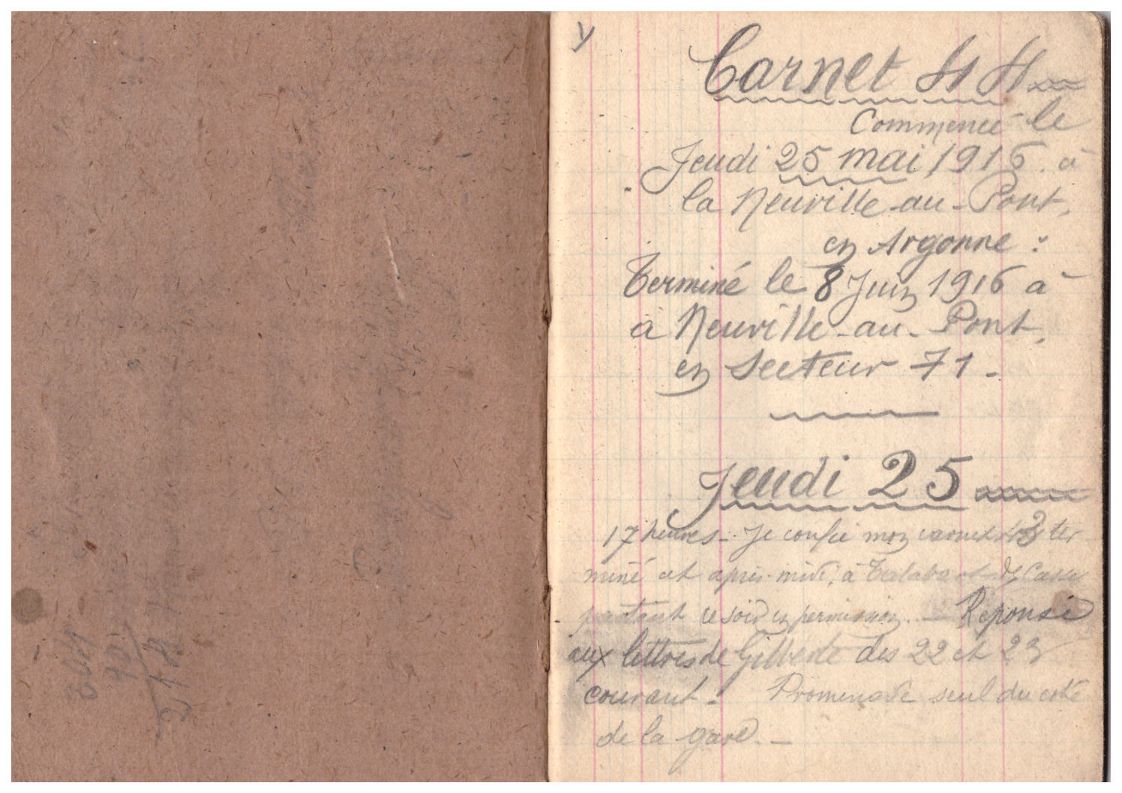 Carnet 44
Commencé le
Jeudi 25 mai 1916 à
la Neuville-au-Pont,
en Argonne :
Terminé le 8 Juin 1916 à
à Neuville-au-Pont,
en Secteur 71 -
Jeudi 25
17 heures - Je confie mon carnet 43 ter
miné cet après-midi, à
partant ce soir en permission. - Réponse
aux lettres de Gilberte des 22 et 23
courant - Promenade seul du côté
de la gare. -